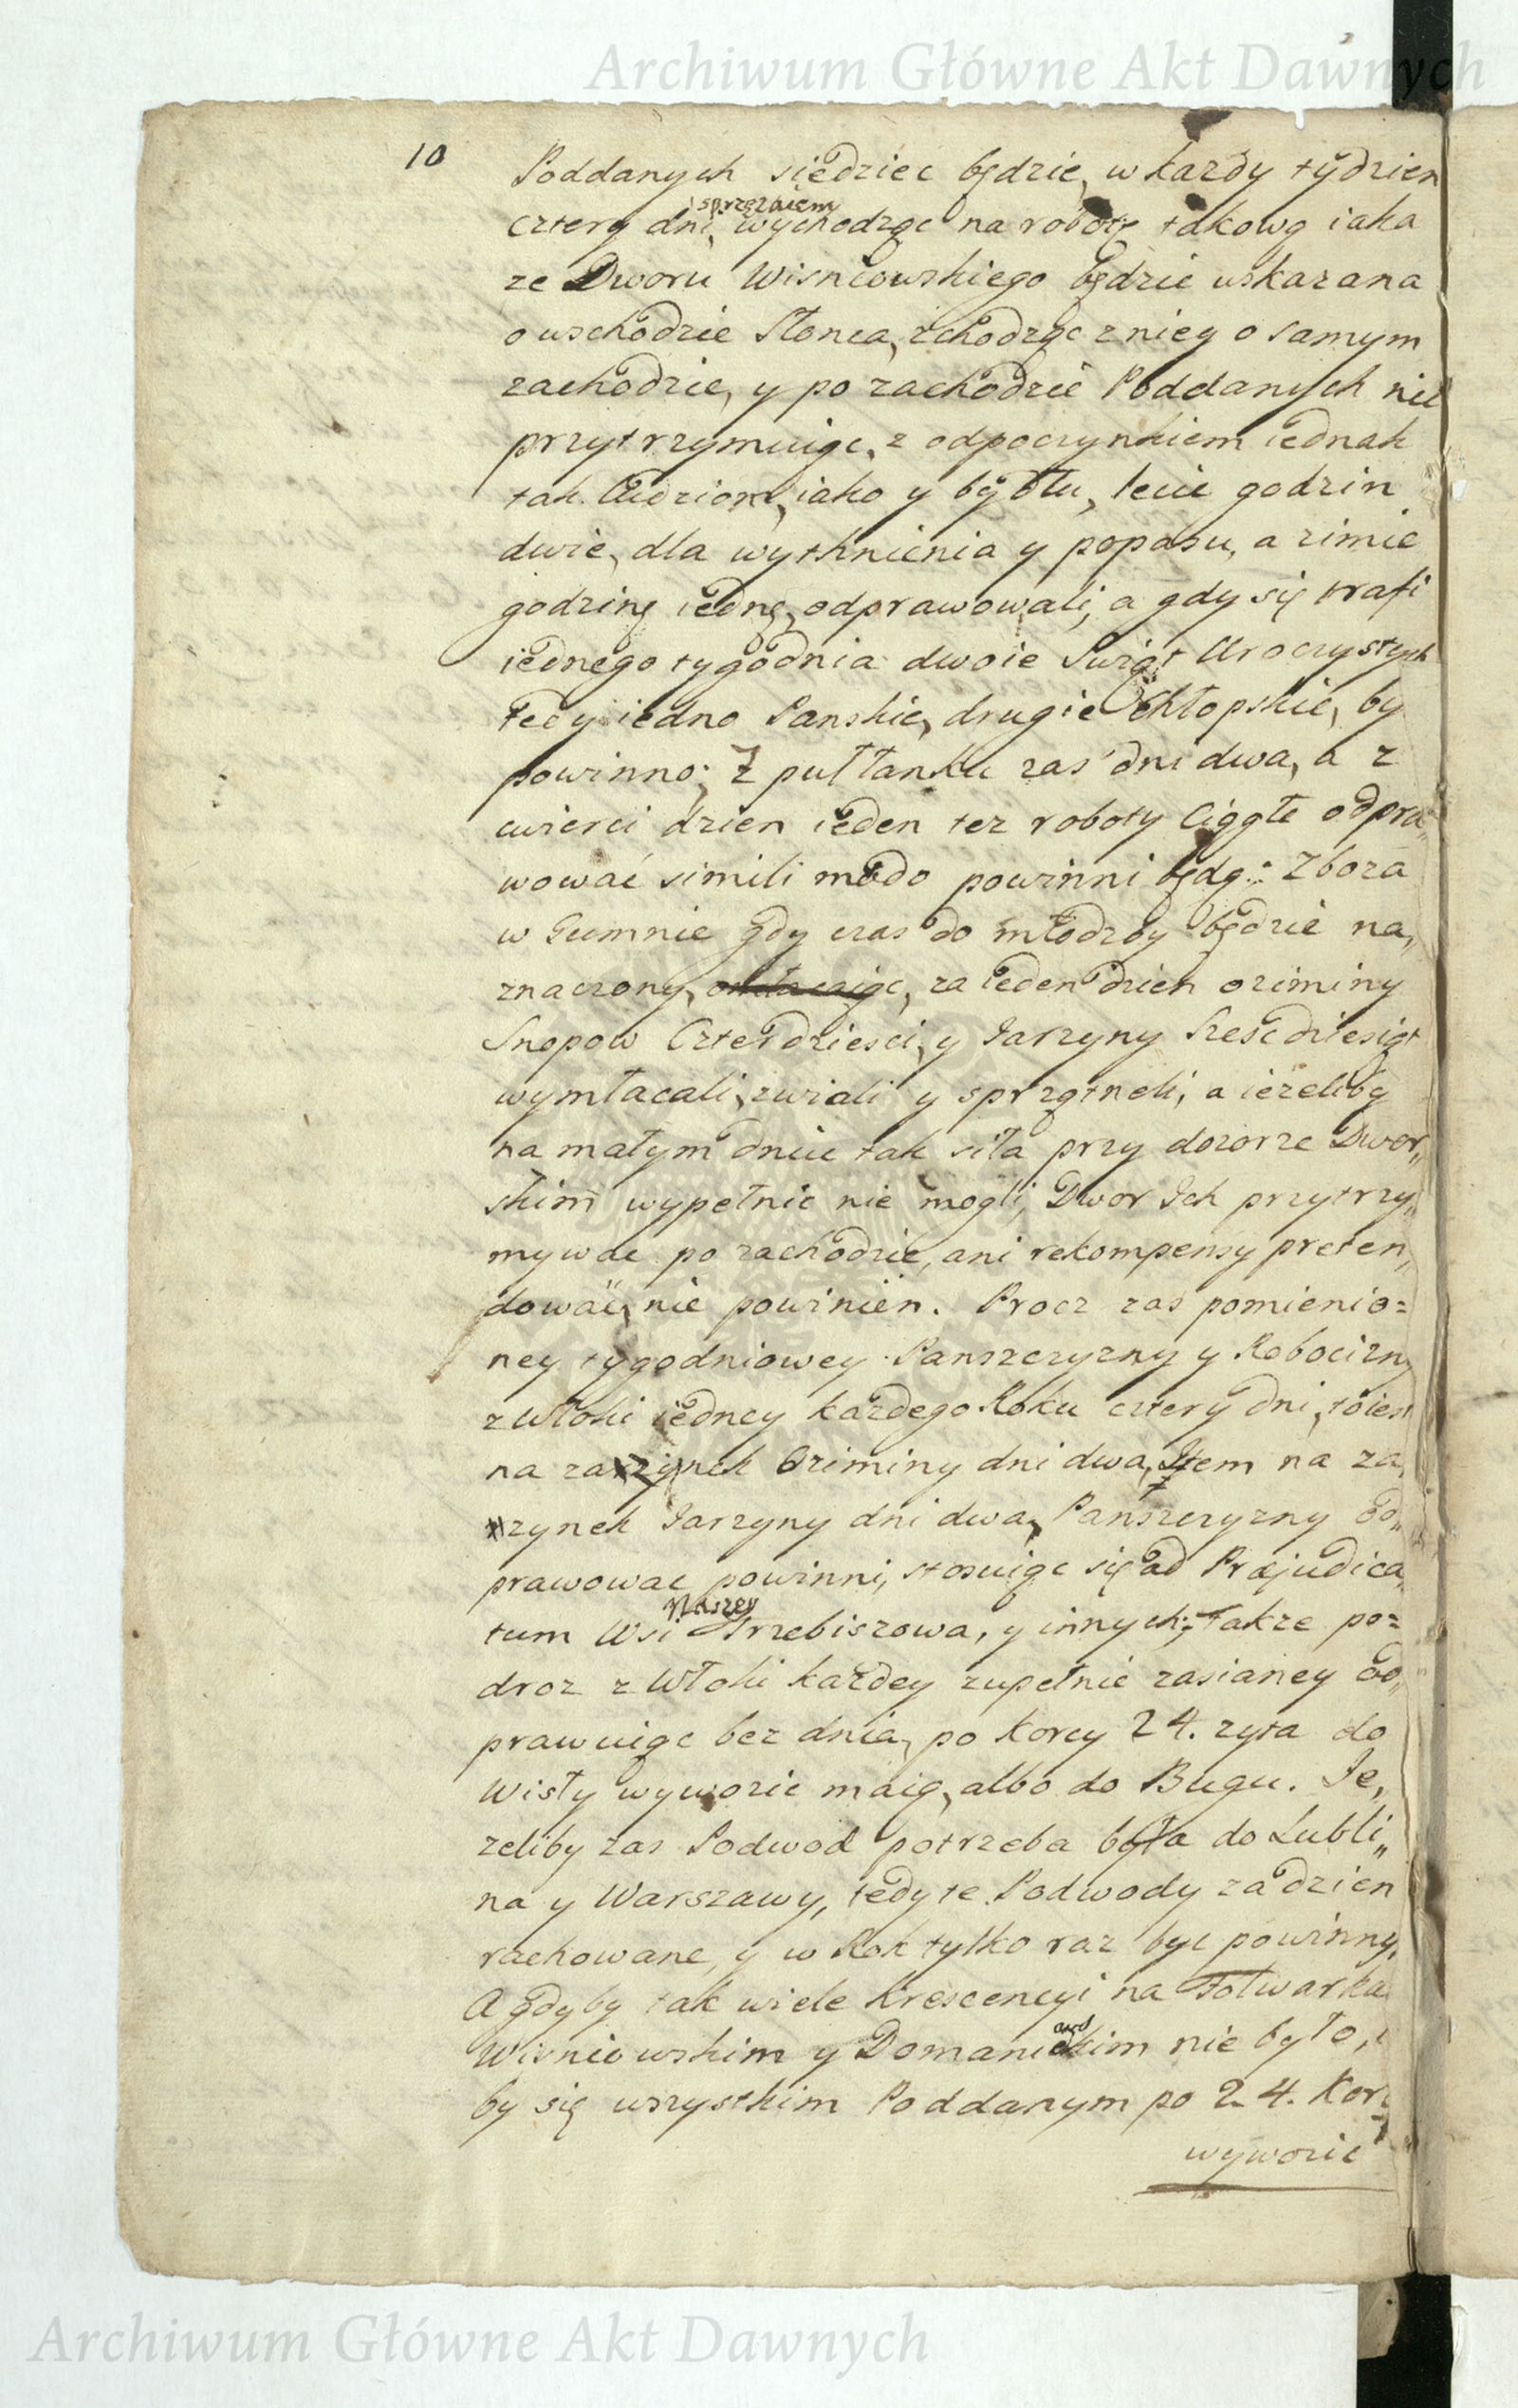 Archiwum Główne Akt Dawnych
10
Poddanych siedziec będzie, w kazdy tydzien
sprzęzaiem
cztery dni, wychodząc na robotę takową iaka
ze Dworu Wisniowskiego będzie wskazana
o wschodzie Słonca, zchodząc z niey o samym
zachodzie, y po zachodzie Poddanych nie
przytrzymuiąc, z odpoczynkiem iednak
tak Ludziom, iako y bydłu, lecie godzin
dwie, dla wythnienia y popasu, a zimie
godzinę iednę, odprawowali, a gdy się trafi
iednego tygodnia dwoie Swiąt Uroczystych
tedy iedno Panskie, drugie Chłopskie, by
powinno; Z pułłanku zas dni dwa, a z
cwierci dzien ieden tez roboty Ciągłe odpra„
wować simili modo powinni będą: Zboza
w Gumnie gdy czas do młodzby będzie na„
znaczony, za ieden dzien oziminy
Snopow Czterdziesci, y Jarzyny Szescdziesiąt
wymłacali, zwiali y sprzątneli, a iezeliby
na małym dniu tak siła przy dozorze Dwor„
skim wypełnic nie mogli, Dwor Ich przytrzy„
mywac po zachodzie, ani rekompensy preten„
dowac, nie powinien. Procz zas pomienio=
ney tygodniowey Panszczyzny y Robocizny
z Włoki iedney kazdego Roku cztery dni, toiest
na zazynek Oziminy dni dwa, Item na za„
zynek Jarzyny dni dwa, Panszczyzny od„
prawowac powinni, stosuiąc się ad Præjudica„
Naszey
tum Wsi Trzebiszowa, y innych; Takze po=
droz z Włoki kazdey zupełnie zasianey od„
prawuiąc bez dnia, po Korcy 24. zyta do
Wisły wywozic maią, albo do Bugu. Je„
zeliby zas Podwod potrzeba była do Lubli„
na y Warszawy, tedy te Podwody za dzien
rachowane, y w Rok tylko raz byc powinny,
A gdyby tak wiele Krescencyi na Folwarka
Wisniowskim y Domanickim nie było,
by się wszystkim Poddanym po 24. Kor
wywozic
Archiwum Główne Akt Dawnych